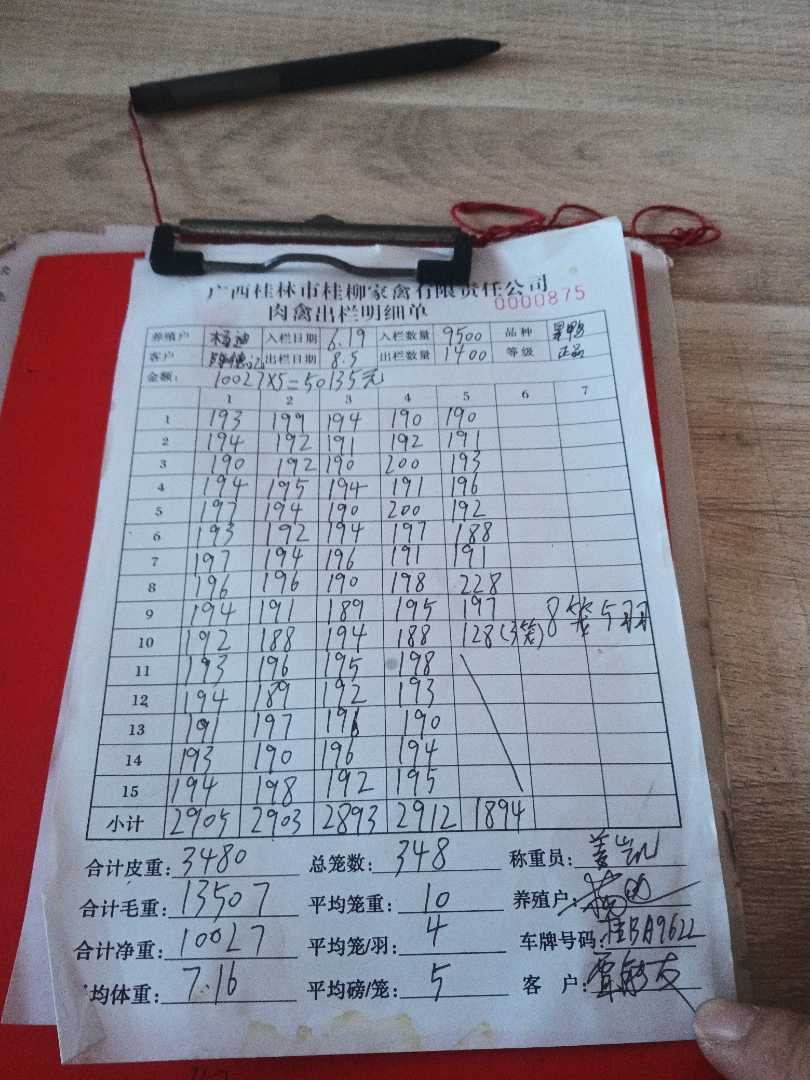 广西桂林市桂柳家禽有限责任公司
0000875
肉禽出栏明细单
养殖户 杨迪 入栏日期 6.19 入栏数量 9500 品种
客户 出栏日期 8.5 出栏数量 1400 等级 正品
金额: 10027×5=50135元
1 2 3 4 5 6 7
1 193 199 194 190 190
2 194 192 191 192 191
3 190 192 190 200 193
4 194 195 194 191 196
5 197 194 190 200 192
6 193 192 194 197 188
7 197 194 196 191 191
8 196 196 190 198 228
9 194 191 189 195 197
10 192 188 194 188 128(3笼) 8笼5羽
11 193 196 195 198
12 194 189 192 193
13 191 197 196 190
14 193 190 196 194
15 194 198 192 195
小计 2905 2903 2893 2912 1894
合计皮重: 3480 总笼数: 348 称重员: 姜凯
合计毛重: 13507 平均笼重: 10 养殖户:
合计净重: 10027 平均笼/羽: 4 车牌号码: 桂BA9622
均体重: 7.16 平均磅/笼: 5 客户: